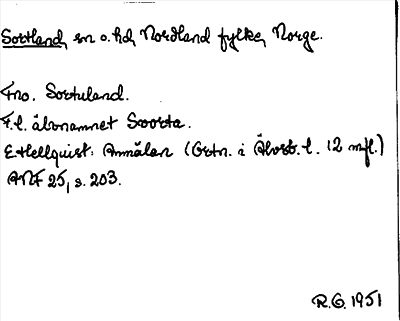 Sortland, sn o. hd, Nordland fylke, Norge.
Fno. Sortuland.
F.t. ånamnet Svorta.
E. Hellquist: Anmälan (Ortn. i Älvsb. l. 12 mfl.)
ANF 25, s. 203.
R.G. 1951